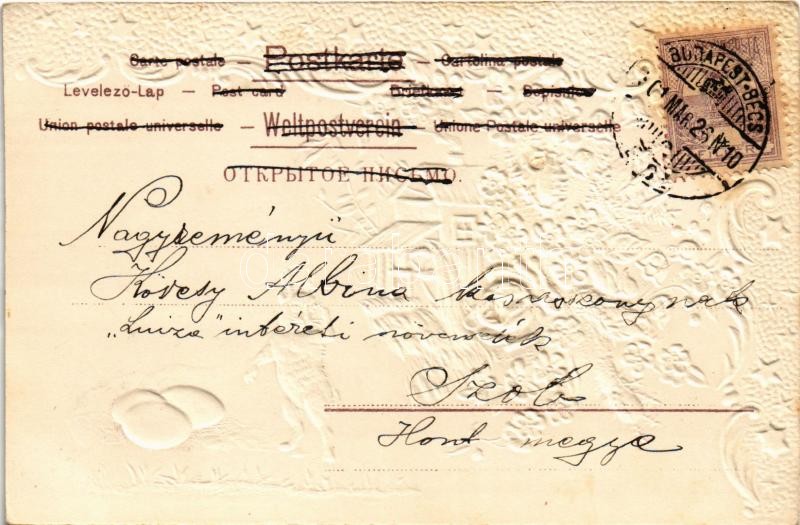 Carte postale — Postkarte — Cartolina postale
Levelező-Lap — Post card — Briefkaart — Dopisnice
Union postale universelle — Weltpostverein — Unione Postale universelle
ОТКРЫТОЕ ПИСЬМО.
BUDAPEST-BÉCS
901 MAR 26 N10
Nagyreményü
Kövesy Albina kisasszonynak
„Luiza" intézeti növendék
Szob
Hont megye